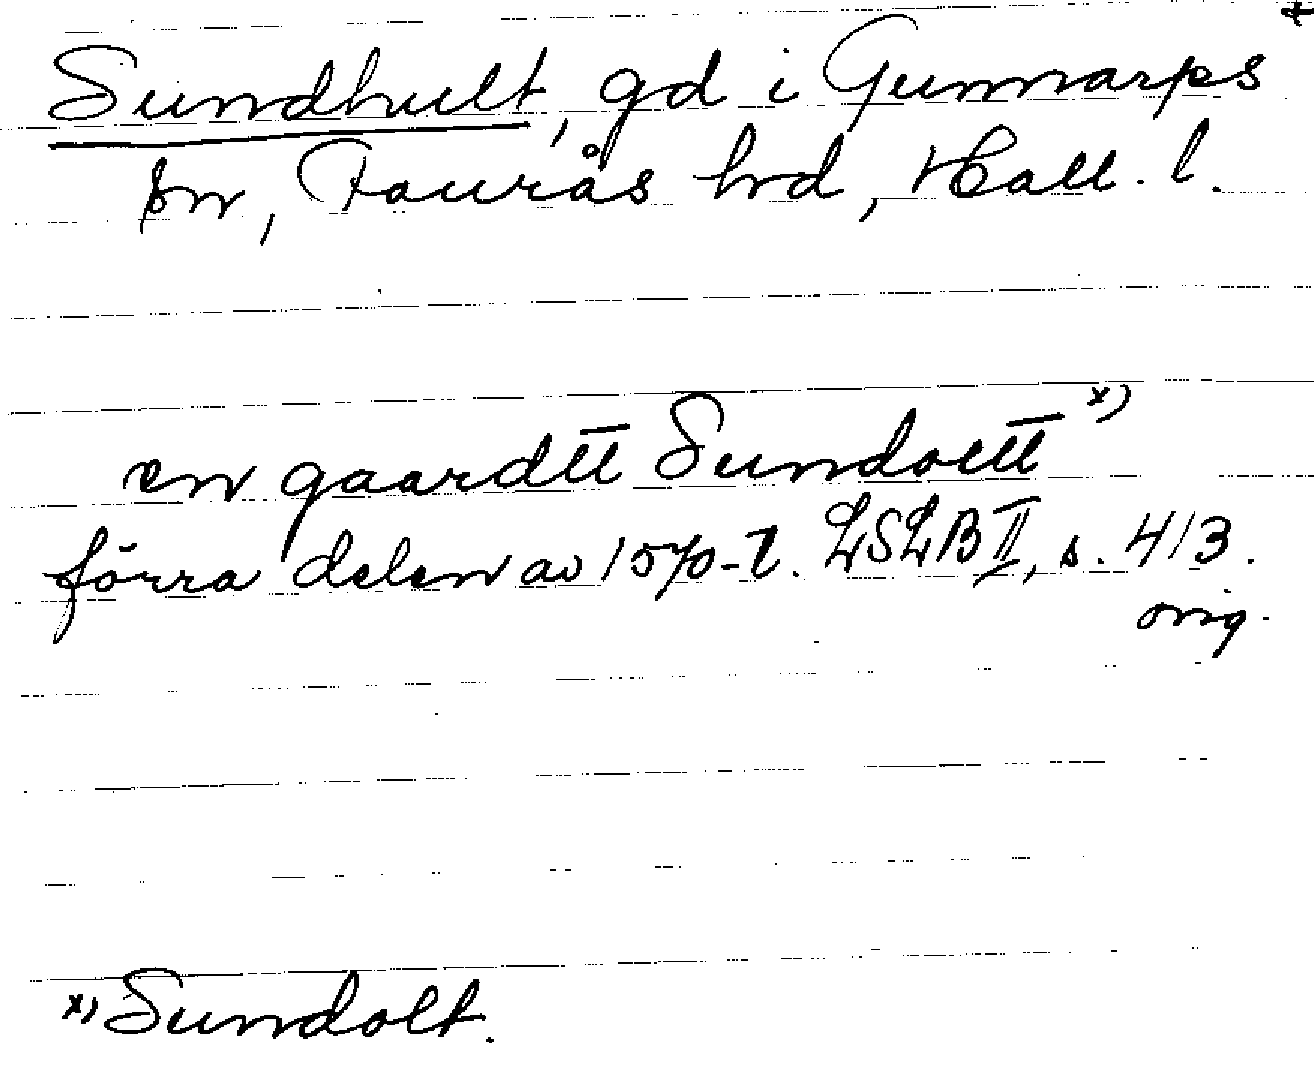 Sundhult, gd i Gunnarps
sn, Faurås hrd, Hall. l.
en gaard Sundoltt x)
förra delen av 1570-t. LSLB II, s. 413.
orig.
x) Sundolt.